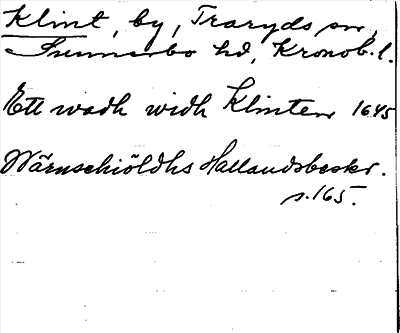 Klint, by, Traryds sn,
Sunnerbo hd, Kronob. l.
Ett wadh widh Klinten 1645
Wärnschiöldhs Hallandsbeskr.
s. 165.